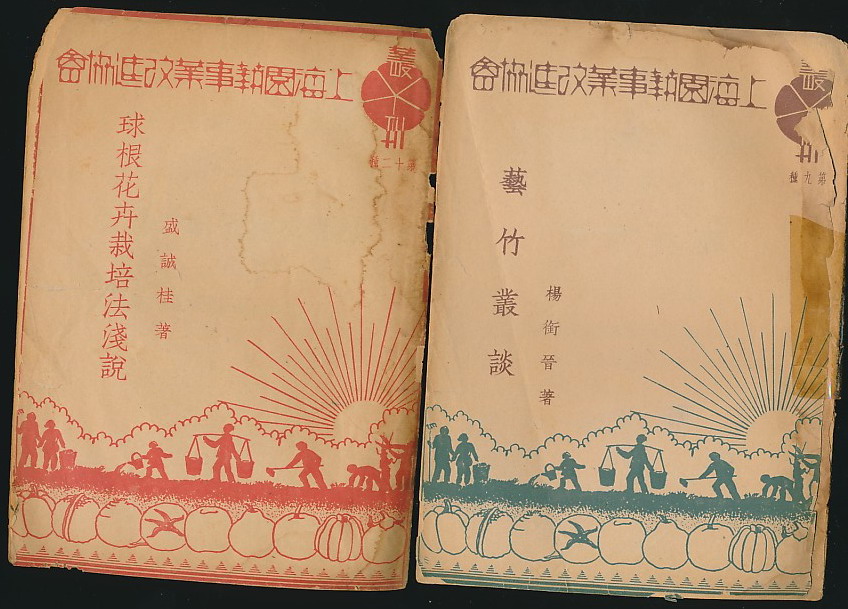 上海園藝事業改進協會
叢刊
第十二種
球根花卉栽培法淺說
盛誠桂著
上海園藝事業改進協會
叢刊
第九種
藝竹叢談
楊銜晉著